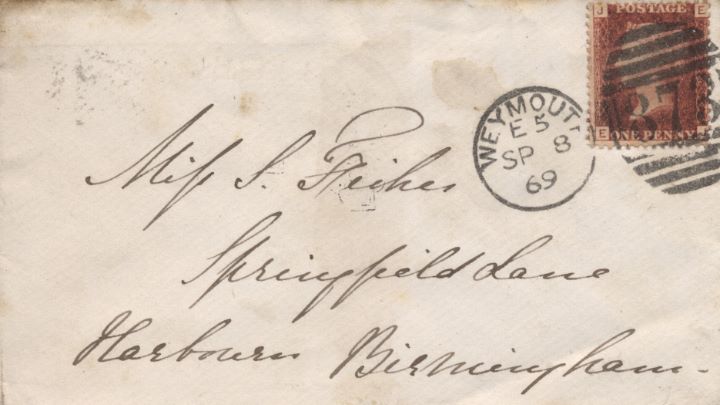 J POSTAGE E
E ONE PENNY
WEYMOUT
E 5
SP 8
69
Miſs S.
Springfield Lane
Harbourn Birmingham.